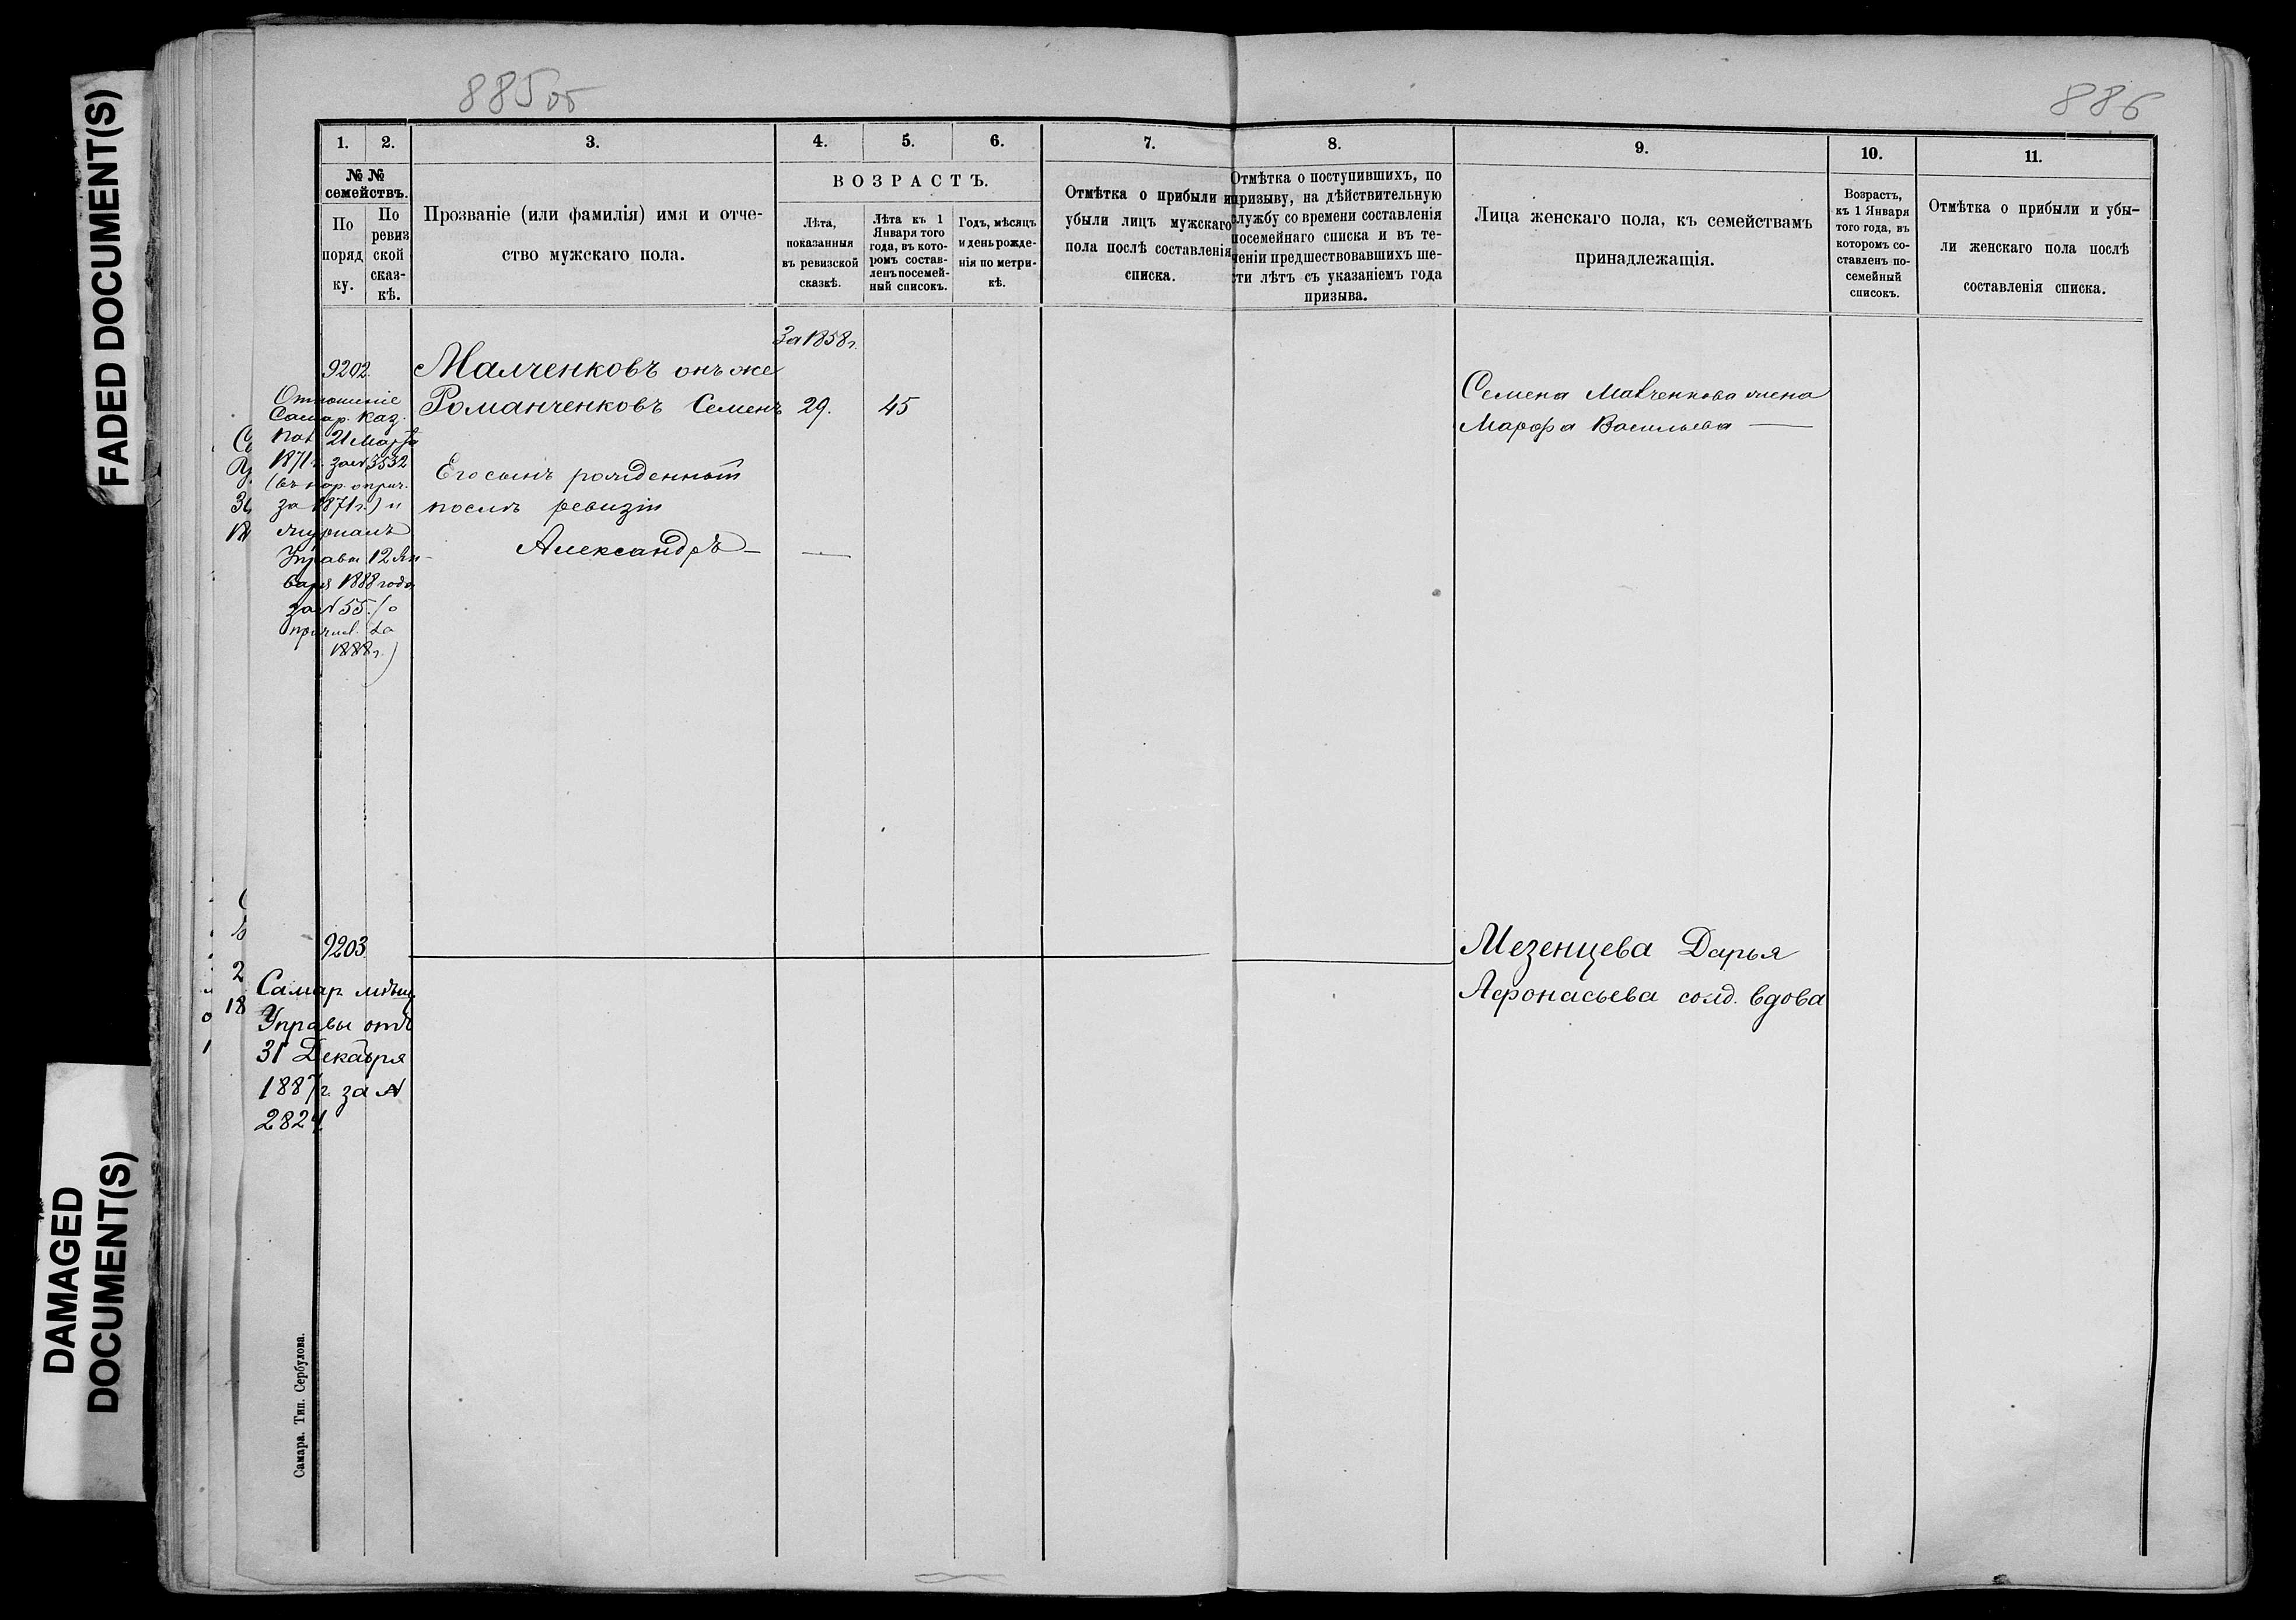 FADED DOCUMENT(S)
DAMAGED
DOCUMENT(S)
885 об
886
1.
2.
3.
4.
5.
6.
7.
8.
9.
10.
11.
№ №
семействъ.
По
поряд
ку.
По
ревиз
ской
сказ-
кѣ.
Прозваніе (или фамилія) имя и отче-
ство мужскаго пола.
ВОЗРАСТЪ.
Лѣта,
показанныя
въ ревизской
сказкѣ.
Лѣта къ 1
Января того
года, въ кото-
ромъ состав-
ленъ посемей-
ный списокъ.
Годъ, мѣсяцъ
и день рожде-
нія по метри-
кѣ.
Отмѣтка о прибыли и
убыли лицъ мужскаго
пола послѣ составленія
списка.
Отмѣтка о поступившихъ, по
призыву, на дѣйствительную
службу со времени составленія
посемейнаго списка и въ те-
ченіи предшествовавшихъ ше-
сти лѣтъ съ указаніемъ года
призыва.
Лица женскаго пола, къ семействамъ
принадлежащія.
Возрастъ,
къ 1 Января
того года, въ
которомъ со-
ставленъ по-
семейный
списокъ.
Отмѣтка о прибыли и убы-
ли женскаго пола послѣ
составленія списка.
За 1858 г.
9202.
Малченковъ онъ же
Романченковъ Семенъ 29. 45
Отношеніе
Самар. Каз.
Пал. 21 Марта
1871 г. за № 3532
за 1871 г.) и
журналъ
Управы 12 Ян-
варя 1888 года
за № 55. (о
причисл. за
1888 г.)
Его сынъ рожденный
послѣ ревизіи
Александръ —
Семена Малченкова жена
Марфа Васильева —
9203
Самар. мѣщ.
Управы отъ
31 Декабря
1887 г. за №
2824.
Мезенцева Дарья
Афонасьева солд. вдова
Самара. Тип. Сербулова.